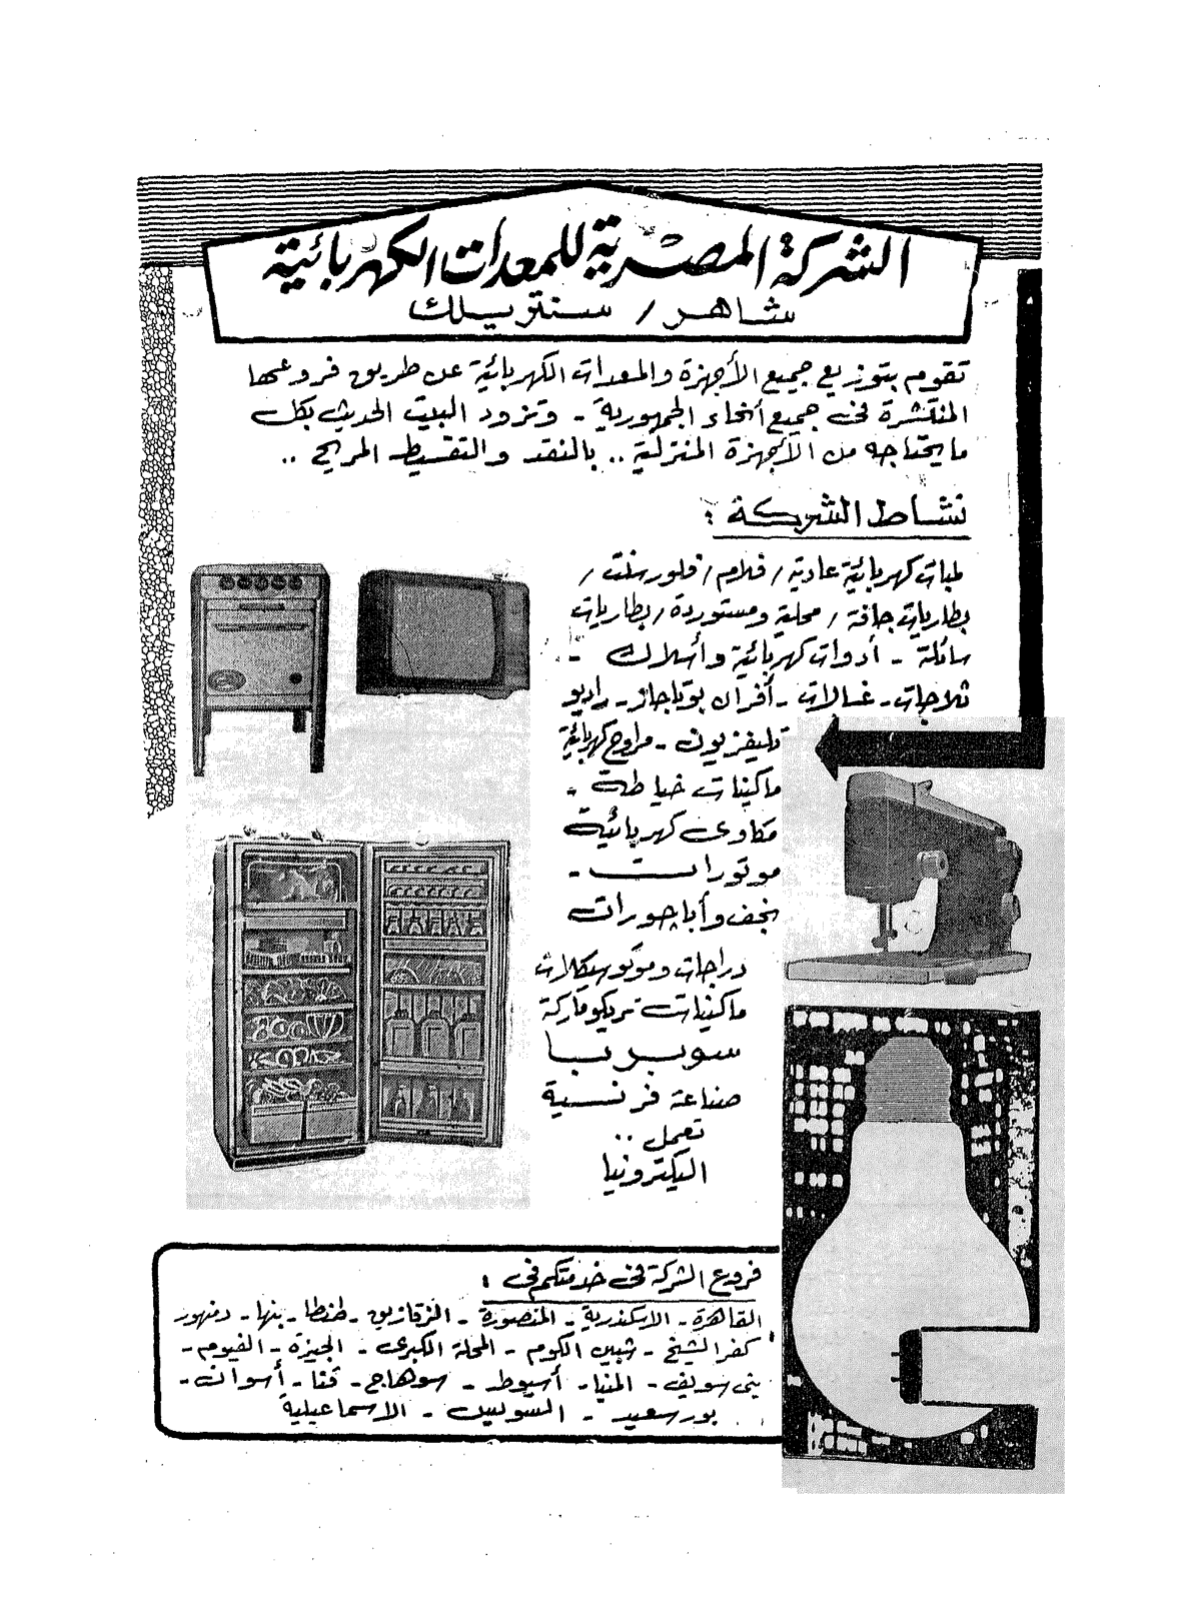 الشركة المصرية للمعدات الكهربائية
شاهر / سنتريلك
تقوم بتوزيع جميع الأجهزة والمعدات الكهربائية عن طريق فروعها
المنتشرة فى جميع أنحاء الجمهورية - وتزود البيت الحديث بكل
ما يحتاجه من الأجهزة المنزلية .. بالنقد والتقسيط المريح ..
نشاط الشركة :
لمبات كهربائية عادية / فلام / فلورسنت /
بطاريات جافة / محلية ومستوردة / بطاريات
سائلة - أدوات كهربائية وأسلاك -
ثلاجات - غسالات - أفران بوتاجاز - راديو
تليفزيون - مراوح كهربائية
ماكينات خياطة -
مكاوى كهربائية
موتورات -
نجف وأباجورات
دراجات وموتوسيكلات
ماكينات تريكو ماركة
سوبربا
صناعة فرنسية
تعمل ..
اليكترونيا
فروع الشركة فى خدمتكم فى :
القاهرة - الاسكندرية - المنصورة - الزقازيق - طنطا - بنها - دمنهور
كفر الشيخ - شبين الكوم - المحلة الكبرى - الجيزة - الفيوم -
بنى سويف - المنيا - أسيوط - سوهاج - قنا - أسوان -
بور سعيد - السويس - الاسماعيلية